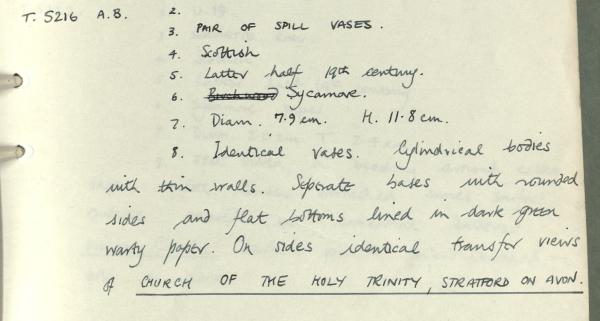 T. 5216 A.B. 2.
3. PAIR OF SPILL VASES.
4. Scottish
5. Latter half 19th century.
6. Birchwood Sycamore.
7. Diam. 7.9 cm. H. 11.8 cm.
8. Identical vases. Cylindrical bodies
with thin walls. Seperate bases with rounded
sides and flat bottoms lined in dark green
warty paper. On sides identical transfer views
of CHURCH OF THE HOLY TRINITY, STRATFORD ON AVON.